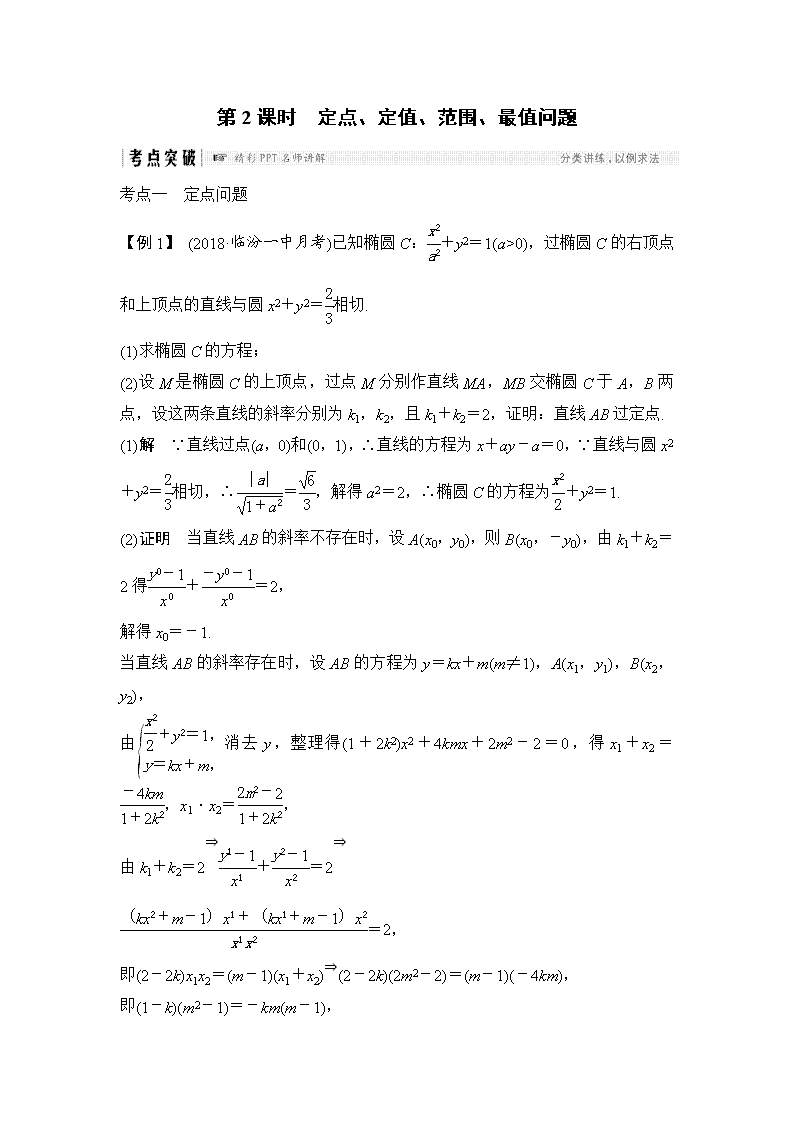 第2课时　定点、定值、范围、最值问题
考点突破 ☞ 精彩PPT名师讲解 分类讲练，以例求法
考点一　定点问题
【例1】 (2018·临汾一中月考)已知椭圆C：x²/a²＋y²＝1(a>0)，过椭圆C的右顶点
和上顶点的直线与圆x²＋y²＝2/3相切.
(1)求椭圆C的方程；
(2)设M是椭圆C的上顶点，过点M分别作直线MA，MB交椭圆C于A，B两
点，设这两条直线的斜率分别为k₁，k₂，且k₁＋k₂＝2，证明：直线AB过定点.
(1)解　∵直线过点(a，0)和(0，1)，∴直线的方程为x＋ay－a＝0，∵直线与圆x²
＋y²＝2/3相切，∴|a|/√(1＋a²)＝√6/3，解得a²＝2，∴椭圆C的方程为x²/2＋y²＝1.
(2)证明　当直线AB的斜率不存在时，设A(x₀，y₀)，则B(x₀，－y₀)，由k₁＋k₂＝
2得(y⁰－1)/x⁰＋(－y⁰－1)/x⁰＝2，
解得x₀＝－1.
当直线AB的斜率存在时，设AB的方程为y＝kx＋m(m≠1)，A(x₁，y₁)，B(x₂，
y₂)，
由{x²/2＋y²＝1，y＝kx＋m，消去y，整理得(1＋2k²)x²＋4kmx＋2m²－2＝0，得x₁＋x₂＝
－4km/(1＋2k²)，x₁·x₂＝(2m²－2)/(1＋2k²)，
由k₁＋k₂＝2⇒(y¹－1)/x¹＋(y²－1)/x²＝2⇒
(（kx²＋m－1）x¹＋（kx¹＋m－1）x²)/(x¹x²)＝2，
即(2－2k)x₁x₂＝(m－1)(x₁＋x₂)⇒(2－2k)(2m²－2)＝(m－1)(－4km)，
即(1－k)(m²－1)＝－km(m－1)，